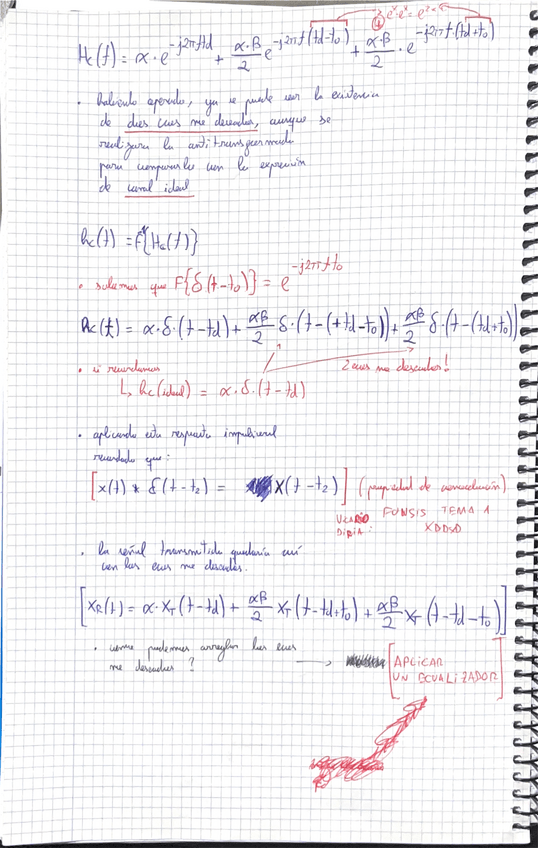 e^x·e^y = e^(x+y)
Hc(f) = α·e^(-j2πftd) + α·β/2 e^(-j2πf(td-t₀)) + α·β/2 · e^(-j2πf·(td+t₀))
· haciendo operado, ya se puede ver la existencia
de dos ecos no deseados, aunque se
realizara la antitransformada
para compararla con la expresión
de canal ideal
hc(t) = F⁻¹{Hc(f)}
· sabemos que F{δ(t-t₀)} = e^(-j2πft₀)
hc(t) = α·δ·(t-td) + αβ/2 δ·(t-(+td-t₀)) + αβ/2 δ·(t-(td+t₀))
· si recordamos
2 ecos no deseados!
↳ hc(ideal) = α·δ·(t-td)
· aplicando esta respuesta impulsional
recordando que:
[x(t) * δ(t-t₂) = X(t-t₂)] (propiedad de convolución)
DIRIA: FUNSIS TEMA 1
XDDSD
· la señal transmitida quedaría así
con los ecos no deseados.
[X_R(t) = α·X_T(t-td) + αβ/2 X_T(t-td+t₀) + αβ/2 X_T(t-td-t₀)]
· como podemos arreglar los ecos
no deseados? → [APLICAR
UN ECUALIZADOR]